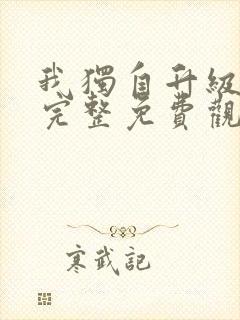 我獨自升級
完整免費觀
寒武記